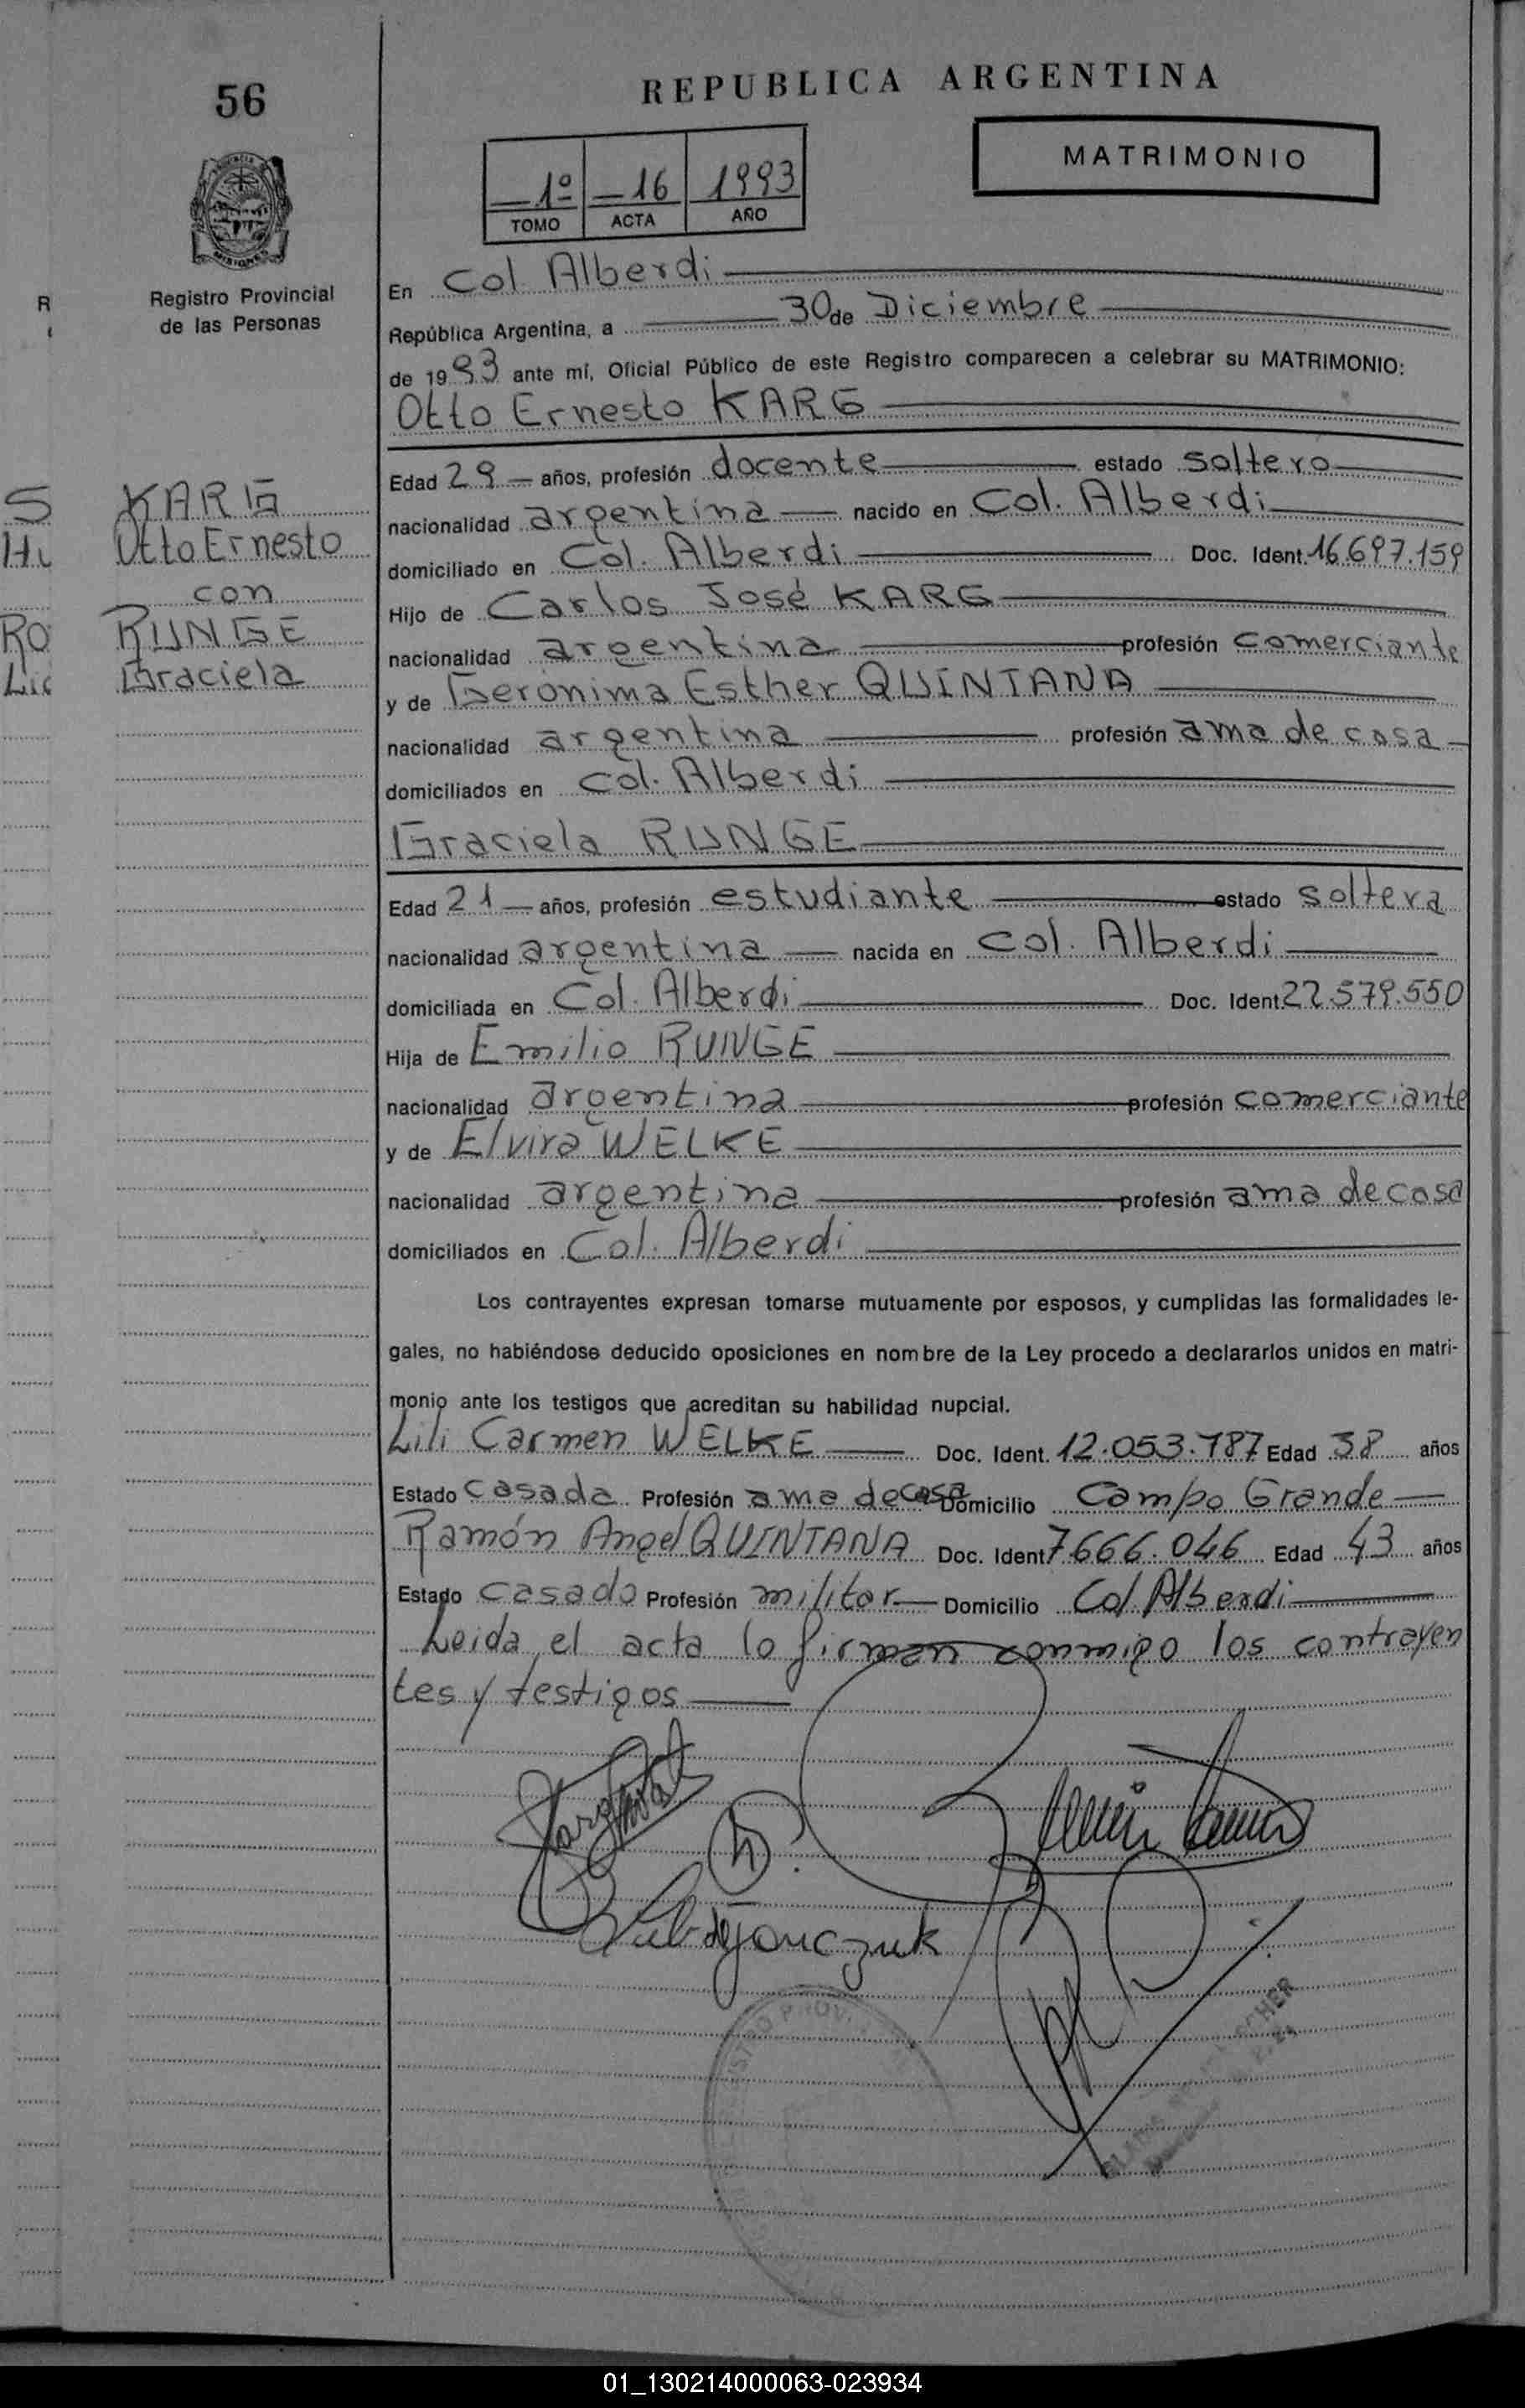 56
REPUBLICA ARGENTINA
MATRIMONIO
1º 16 1993
TOMO ACTA AÑO
MISIONES
Registro Provincial
de las Personas
En Col. Alberdi
República Argentina, a 30 de Diciembre
de 1993 ante mí, Oficial Público de este Registro comparecen a celebrar su MATRIMONIO:
Otto Ernesto KARG
Edad 29 años, profesión docente estado soltero
nacionalidad argentina nacido en Col. Alberdi
domiciliado en Col. Alberdi Doc. Ident. 16.697.159
Hijo de Carlos José KARG
nacionalidad argentina profesión comerciante
y de Gerónima Esther QUINTANA
nacionalidad argentina profesión ama de casa
domiciliados en Col. Alberdi
KARG
Otto Ernesto
con
RUNGE
Graciela
Graciela RUNGE
Edad 21 años, profesión estudiante estado soltera
nacionalidad argentina nacida en Col. Alberdi
domiciliada en Col. Alberdi Doc. Ident. 22.579.550
Hija de Emilio RUNGE
nacionalidad argentina profesión comerciante
y de Elvira WELKE
nacionalidad argentina profesión ama de casa
domiciliados en Col. Alberdi
Los contrayentes expresan tomarse mutuamente por esposos, y cumplidas las formalidades le-
gales, no habiéndose deducido oposiciones en nombre de la Ley procedo a declararlos unidos en matri-
monio ante los testigos que acreditan su habilidad nupcial.
Lili Carmen WELKE Doc. Ident. 12.053.787 Edad 38 años
Estado casada Profesión ama de casa Domicilio Campo Grande
Ramón Angel QUINTANA Doc. Ident. 7.666.046 Edad 43 años
Estado casado Profesión militar Domicilio Col. Alberdi
Leida el acta lo firman conmigo los contrayen
tes y testigos
01_130214000063-023934